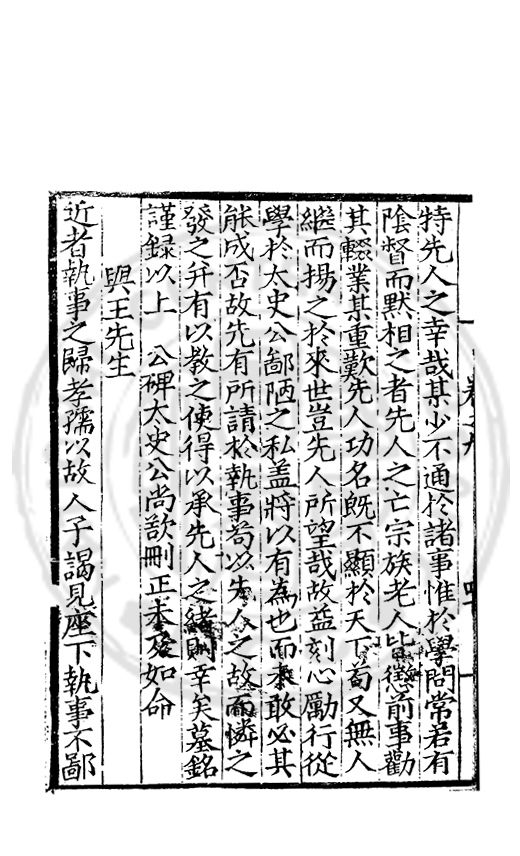 特先人之幸哉某少不通於諸事惟於學問常若有
陰督而默相之者先人之亡宗族老人皆懲前事勸
其輟業某重歎先人功名既不顯於天下苟又無人
繼而揚之於來世豈先人所望哉故益刻心勵行從
學於太史公鄙陋之私盖將以有為也而未敢必其
能成否故先有所請於執事苟以先人之故而憐之
發之并有以教之使得以承先人之緒則幸矣墓銘
謹録以上　公碑太史公尚欲刪正未及如命
與王先生
近者執事之歸孝孺以故人子謁見座下執事不鄙
卷之九